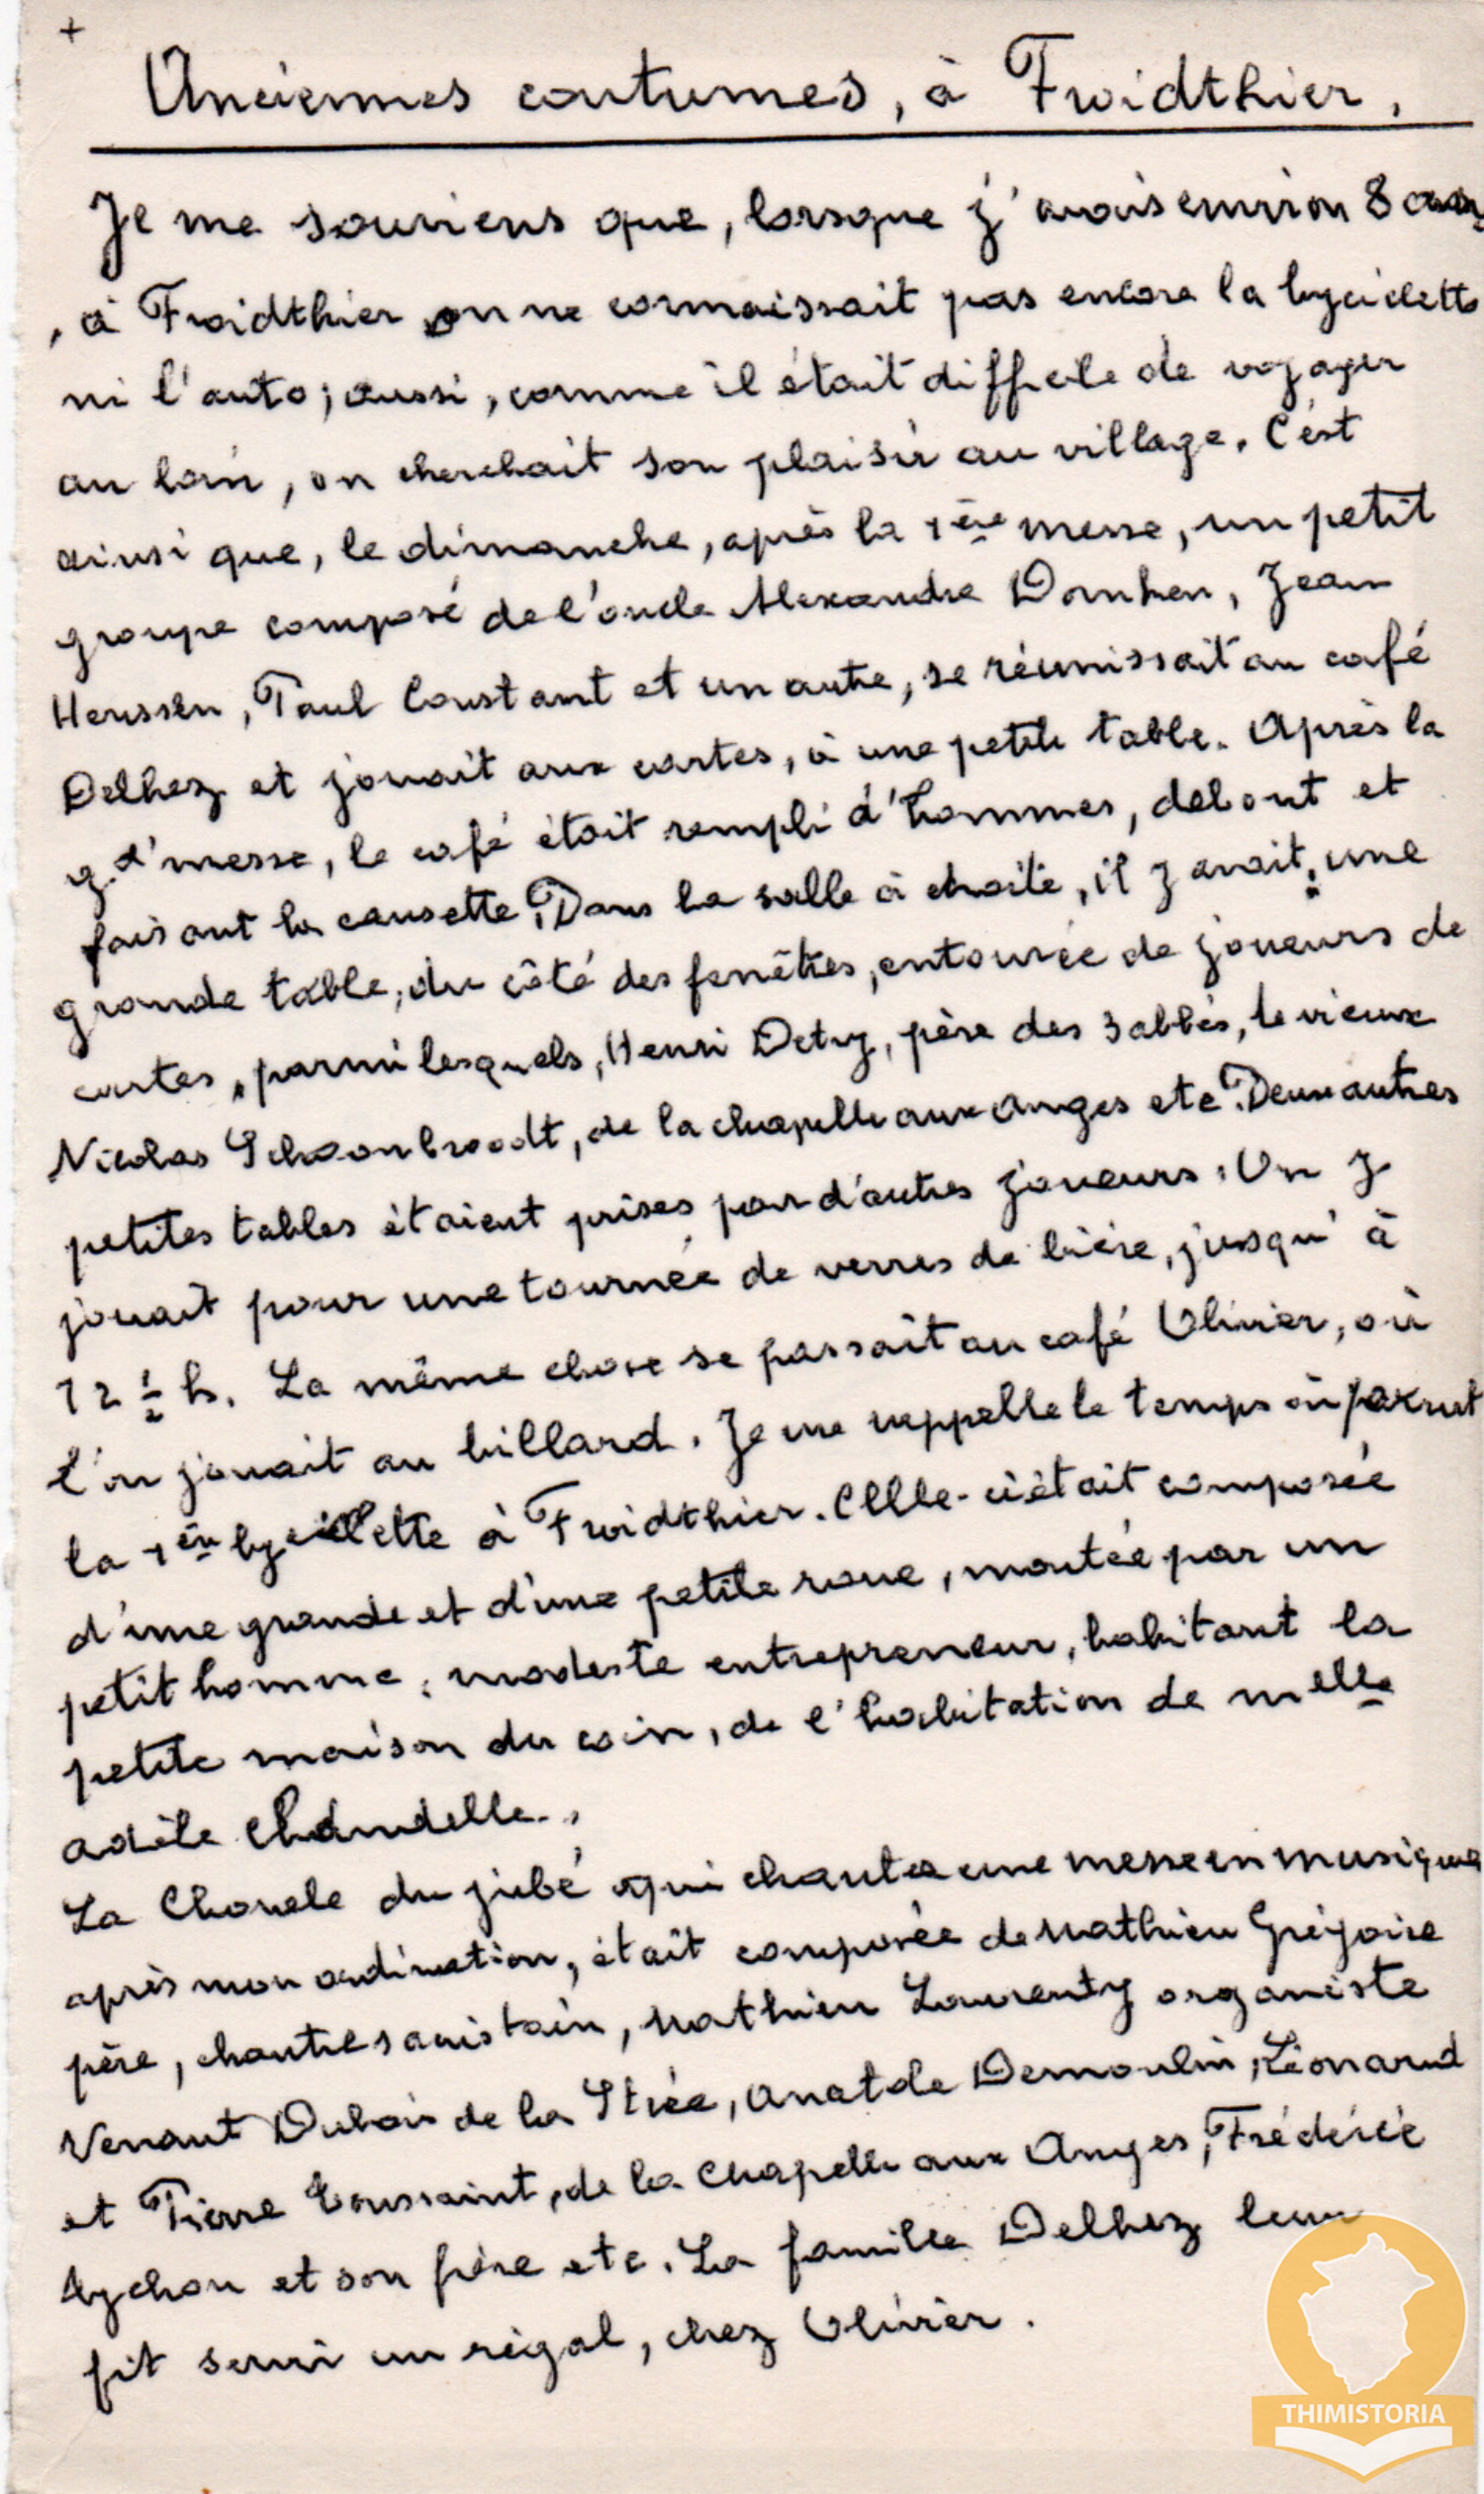 +
Anciennes coutumes, à Froidthier.
Je me souviens que, lorsque j'avais environ 8 ans,
, à Froidthier on ne connaissait pas encore la byciclette
ni l'auto; aussi, comme il était difficile de voyager
au loin, on cherchait son plaisir au village. C'est
ainsi que, le dimanche, après la 1ère messe, un petit
groupe composé de l'oncle Alexandre Donhen, Jean
Heussen, Paul Constant et un autre, se réunissait au café
Delhez et jouait aux cartes, à une petite table. Après la
gd'messe, le café était rempli d'hommes, debout et
faisant la causette. Dans la salle à droite, il y avait, une
grande table, du côté des fenêtres, entourée de joueurs de
cartes, parmi lesquels, Henri Detry, père des 3 abbés, le vieux
Nicolas Schoonbroodt, de la chapelle aux Anges etc. Deux autres
petites tables étaient prises par d'autres joueurs. On y
jouait pour une tournée de verres de bière, jusqu'à
12 1/2 h. La même chose se passait au café Olivier, où
l'on jouait au billard. Je me rappelle le temps où parut
la 1ère byciclette à Froidthier. Celle-ci était composée
d'une grande et d'une petite roue, montée par un
petit homme, modeste entrepreneur, habitant la
petite maison du coin, de l'habitation de Melle
Adèle Chandelle.
La Chorale du jubé qui chanta une messe en musique
après mon ordination, était composée de Mathieu Grégoire
père, chantre sacristain, Mathieu Laurenty organiste
Venant Dubois de la Strée, Anatole Demoulin, Léonard
et Pierre Toussaint, de la Chapelle aux Anges, Frédéric
Lychou et son frère etc. La famille Delhez leur
fit servir un régal, chez Olivier.
THIMISTORIA